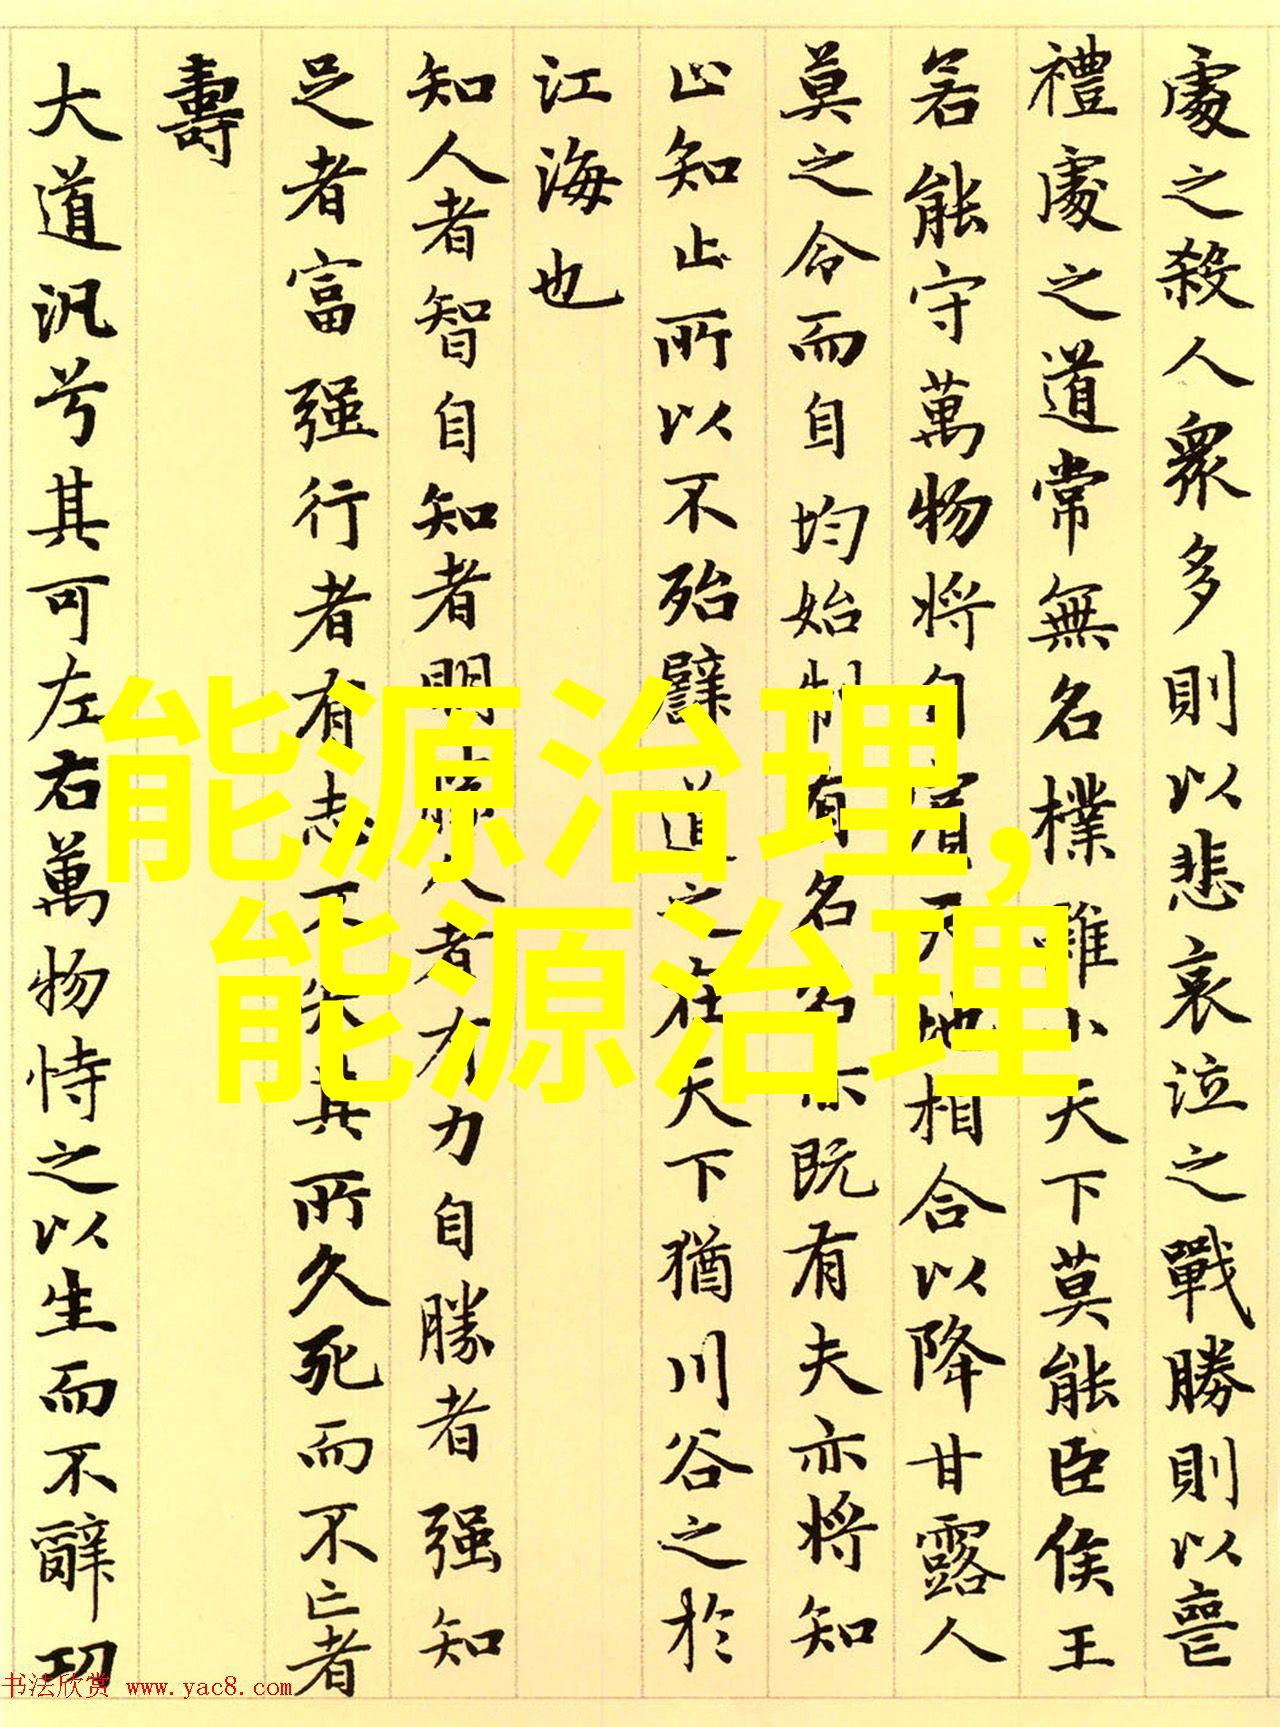 處之殺人眾多則以悲哀泣之戰勝則以喪
禮處之道常無名樸雖小天下莫能臣侯王
若能守萬物將自賓天地相合以降甘露人
莫之令而自均始制有名名亦既有夫亦將知
止知止所以不殆譬道之在天下猶川谷之於
江海也
知人者智自知者明勝人者有力自勝者强知
足者富强行者有志不失其所久死而不亡者
壽
大道汎兮其可左右萬物恃之以生而不辭功
能源治理,
能源治理
书法欣赏 www.yac8.com